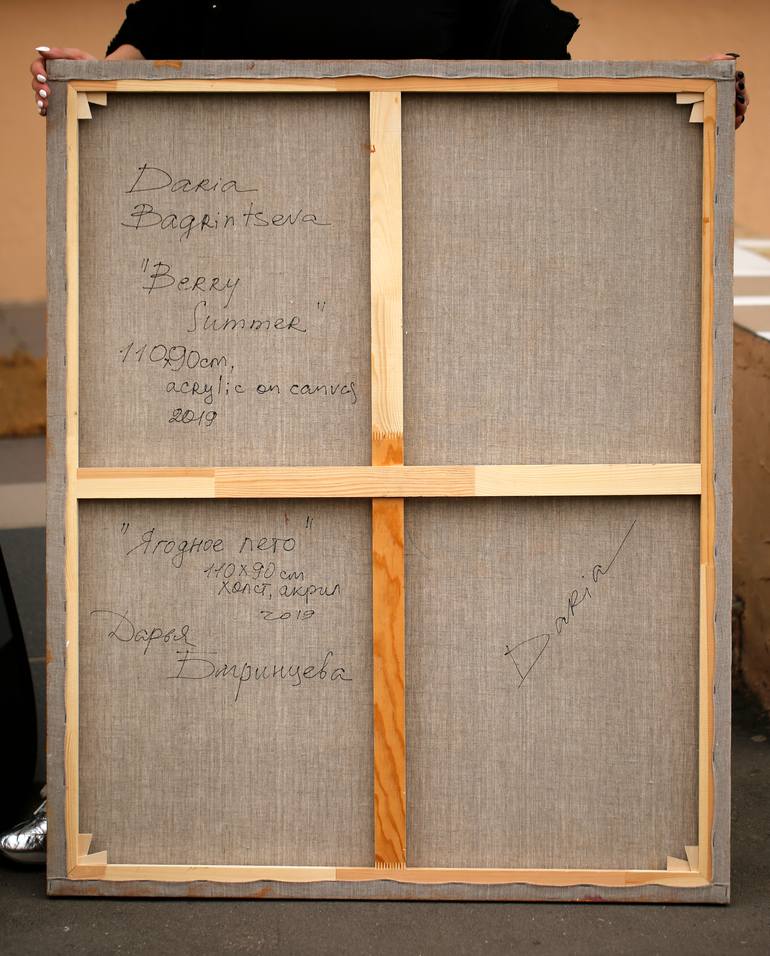 Daria
Bagrintseva
"Berry
Summer"
110x90cm,
acrylic on canvas
2019
"Ягодное лето"
110x90 см
холст, акрил
2019
Дарья
Багринцева
Daria